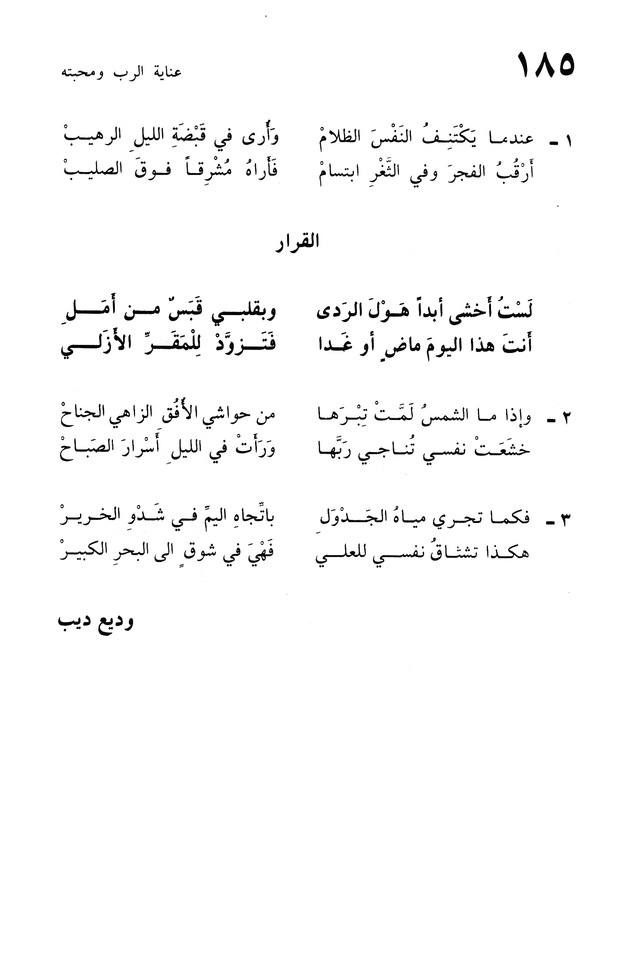 ١٨٥
عناية الرب ومحبته
١ ـ عندما يَكْتَنِفُ النَفْسَ الظلامْ وَأَرى في قَبْضَةِ الليلِ الرهيبْ
أَرْقُبُ الفجرَ وفي الثَغْرِ ابتسامْ فَأَراهُ مُشْرِقاً فوقَ الصليبْ
القرار
لَسْتُ أَخشى أبداً هَوْلَ الرَدى وبقلبي قَبَسٌ من أَمَلِ
أَنتَ هذا اليومَ ماضٍ أو غَدا فَتَزوَّدْ لِلْمَقَرِّ الأَزَلي
٢ ـ وإذا ما الشمسُ لَمَّتْ تِبْرَها من حواشي الأُفُقِ الزاهي الجناحْ
خشَعَتْ نفسي تُناجي رَبَّها وَرَأتْ في الليلِ أَسْرارَ الصَباحْ
٣ ـ فكما تجري مياهُ الجَدْوَلِ باتِّجاهِ اليمِّ في شَدْوِ الخريرْ
هكذا تشتاقُ نفسي للعلي فَهْيَ في شوقٍ الى البحرِ الكبيرْ
وديع ديب